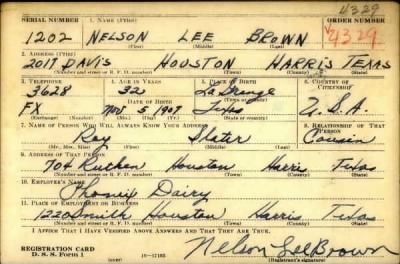 4329
SERIAL NUMBER 1. NAME (Print) ORDER NUMBER
1202 NELSON LEE BROWN V4329
(First) (Middle) (Last)
2. ADDRESS (Print)
2017 DAVIS HOUSTON HARRIS TEXAS
(Number and street or R. F. D. number) (Town) (County) (State)
3. TELEPHONE 4. AGE IN YEARS 5. PLACE OF BIRTH 6. COUNTRY OF CITIZENSHIP
3628 32 La Grange
DATE OF BIRTH (Town or county)
FX Nov 5 1907 Texas U.S.A.
(Exchange) (Number) (Mo.) (Day) (Yr.) (State or country)
7. NAME OF PERSON WHO WILL ALWAYS KNOW YOUR ADDRESS 8. RELATIONSHIP OF THAT PERSON
Roy Slater Cousin
(Mr., Mrs., Miss) (First) (Middle) (Last)
9. ADDRESS OF THAT PERSON
704 Houston Harris Texas
(Number and street or R. F. D. number) (Town) (County) (State)
10. EMPLOYER'S NAME
Dairy
11. PLACE OF EMPLOYMENT OR BUSINESS
1220 Smith Houston Harris Texas
(Number and street or R. F. D. number) (Town) (County) (State)
I AFFIRM THAT I HAVE VERIFIED ABOVE ANSWERS AND THAT THEY ARE TRUE.
REGISTRATION CARD
D. S. S. Form 1 16—17105 Nelson Lee Brown
(Registrant's signature)